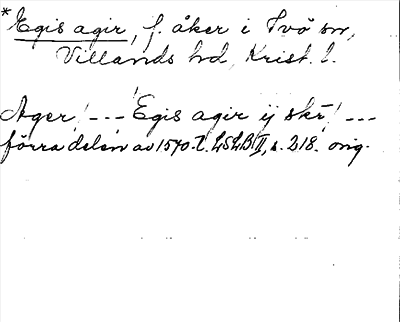 *Egis agir, f. åker i Ivö sn,
Villands hd, Krist. l.
Ager! --- Egis agir ij skr! ---
förra delen av 1570-t. LSLB II, s. 218. orig.